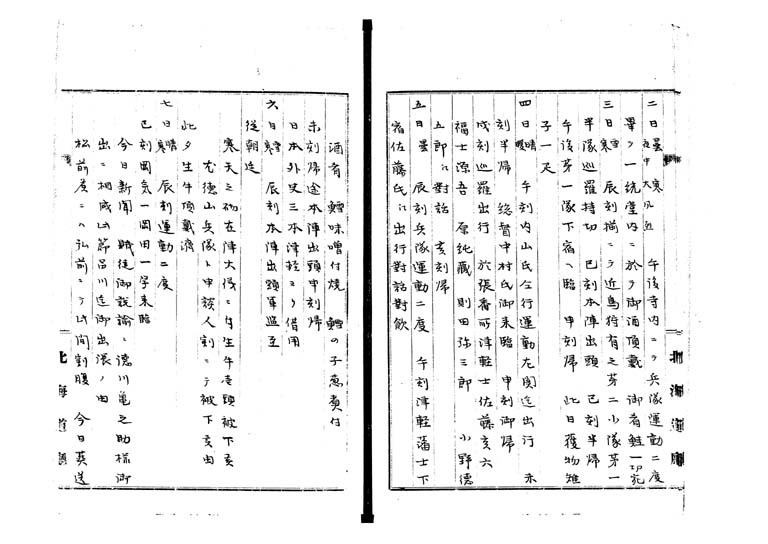 二日曇寒 午後寺内ニテ兵隊運動二度
畢テ一統堂内ニ於テ御酒頂戴 御肴鮭一切宛
三日寒 辰刻揃ニテ近鳥狩有之第二小隊第一
半隊巡羅持切 巳刻本陣出頭 巳刻半帰
午後第一隊下宿ヘ臨 申刻帰 此日獲物雉
子一疋
四日晴 午刻内山氏仝行運動左関迄出行 未
刻半帰 総督中村氏御来臨 申刻御帰
戌刻巡羅出行 於張番所津軽士佐藤亥六
福士源吾 原純蔵 則田弥三郎 小野徳
五郎ニ対話 亥刻帰
五日曇 辰刻兵隊運動二度 午刻津軽藩士下
宿佐藤氏ニ出行対話対飲
酒肴 鱈味噌付焼 鱈の子煮貫付
未刻帰途本陣出頭申刻帰
日本外史三本津軽ヨリ借用
六日寒 辰刻本陣出頭軍監至
従朝廷
寒天之砌在陣大儀ニ付生牛壱頭被下云
尤徳山兵隊ト申談人割ニテ被下云由
此夕生牛頂戴済
七日寒晴 辰刻運動二度
巳刻岡気一岡田一学来臨
今日新聞 賊徒御説諭ニ徳川亀之助様御
出ニ相成此節品川迄御出張ノ由
松前度ニハ弘前ニテ此間割腹 今日葬送
北海道庁
北海道庁